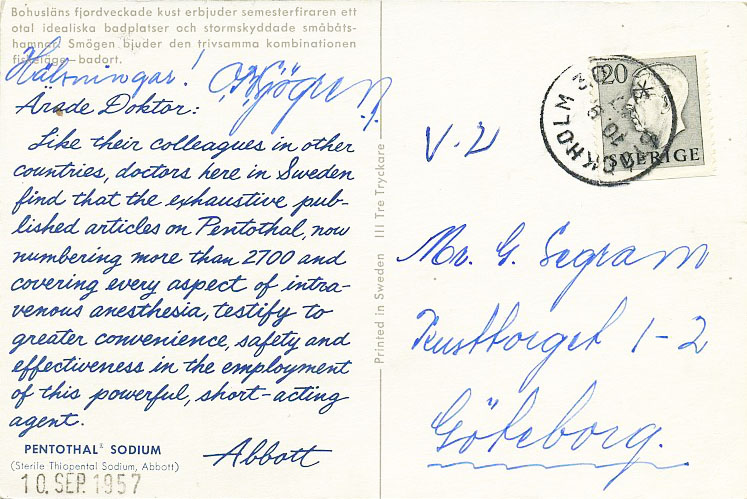 Bohusläns fjordveckade kust erbjuder semesterfiraren ett
otal idealiska badplatser och stormskyddade småbåts-
hamnar. Smögen bjuder den trivsamma kombinationen
fiskeläge—badort.
Hälsningar!
Ärade Doktor:
Like their colleagues in other
countries, doctors here in Sweden
find that the exhaustive pub-
lished articles on Pentothal, now
numbering more than 2700 and
covering every aspect of intra-
venous anesthesia, testify to
greater convenience, safety and
effectiveness in the employment
of this powerful, short-acting
agent.
PENTOTHAL® SODIUM
(Sterile Thiopental Sodium, Abbott)
Abbott
10. SEP. 1957
Printed in Sweden III Tre Tryckare
20
SVERIGE
STOCKHOLM
Mr. G. Segram
Kusttorget 1-2
Göteborg.